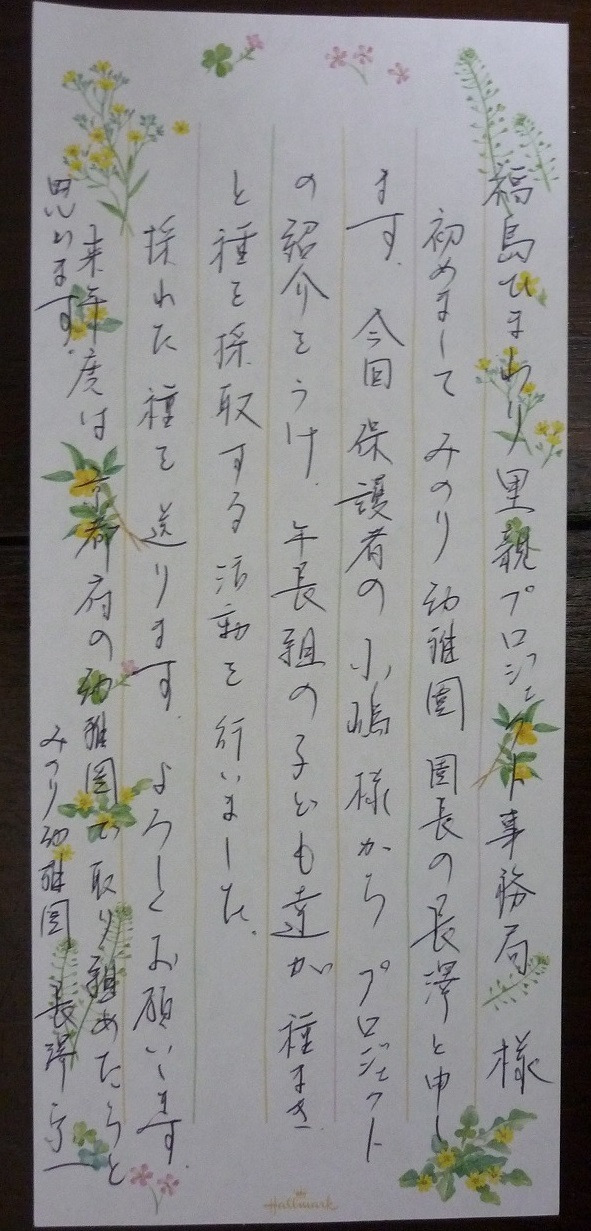 福島ひまわり里親プロジェクト事務局 様
初めまして みのり幼稚園 園長の長澤と申し
ます。今回 保護者の小嶋様から プロジェクト
の紹介をうけ、年長組の子ども達が 種まき
と種を採取する活動を行いました。
採れた種を送ります。よろしくお願いします。
来年度は 京都府の幼稚園で取り組めたらと
思います。
みのり幼稚園 長澤
Hallmark